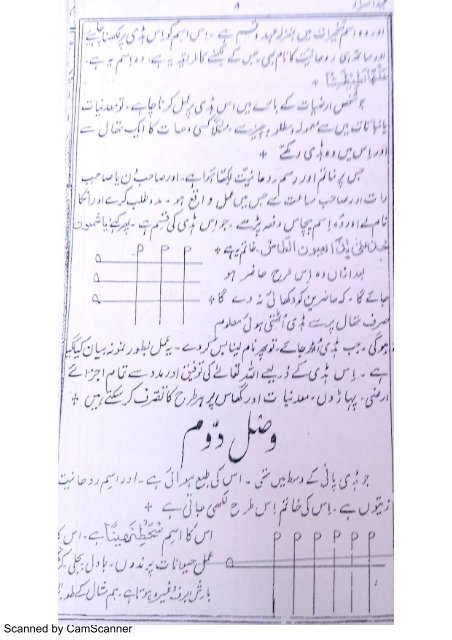 ۸
اور وہ اسم تسخیرات میں بمنزلہ عہد و قسم ہے۔ اس اسم کو اس ہڈی پر لکھنا چاہیے
اور ساتھ ہی روحانیت کا نام بھی جس کے لکھنے کا طریقہ یہ ہے۔ وہ اسم یہ ہے۔
جو شخص ارضیات کے بارے میں اس ہڈی پر عمل کرنا چاہے۔ تو معدنیات
یا نباتات میں سے معمولہ مطلوبہ چیز سے مثلاً کسی دھات کا ایک تھال لے
اور اس میں وہ ہڈی رکھے
جس پر خاتم اور رسم روحانیت لکھا ہوا ہے۔ اور صاحب دن یا صاحب
رات اور صاحب ساعت سے جس میں عمل واقع ہو۔ مدد طلب کرے اور انکا
نام لے اور وہ اسم پچاس دفعہ پڑھے۔ جو اس ہڈی کی قسم ہے۔ پھر کہے یا شمعون
خاتم یہ ہے
بعد ازاں وہ اس طرح حاضر ہو
جائے گا۔ کہ حاضرین کو دکھائی نہ دے گا
صرف تھال پر سے ہڈی اٹھتی ہوئی معلوم
ہوگی۔ جب ہڈی اوپر جائے۔ تو پھر نام لینا بس کر دے۔ یہ عمل بطور نمونہ بیان کیا گیا
ہے۔ اس ہڈی کے ذریعے اللہ تعالیٰ کی توفیق اور مدد سے تمام اجزائے
ارضی۔ پہاڑوں۔ معدنیات اور گھاس پر ہر طرح کا تصرف کر سکتے ہیں
وصل دوم
جو ہڈی پانی کے وسط میں تھی۔ اس کی طبع ہوائی ہے۔ اور اسم روحانیت
زیتون ہے۔ اس کی خاتم اس طرح لکھی جاتی ہے
اس کا اسم ہے۔ اس کا
عمل حیوانات پرندوں۔ بادل بجلی
بارش برف وغیرہ ہوتا ہے۔ ہم مثال کے طور
Scanned by CamScanner